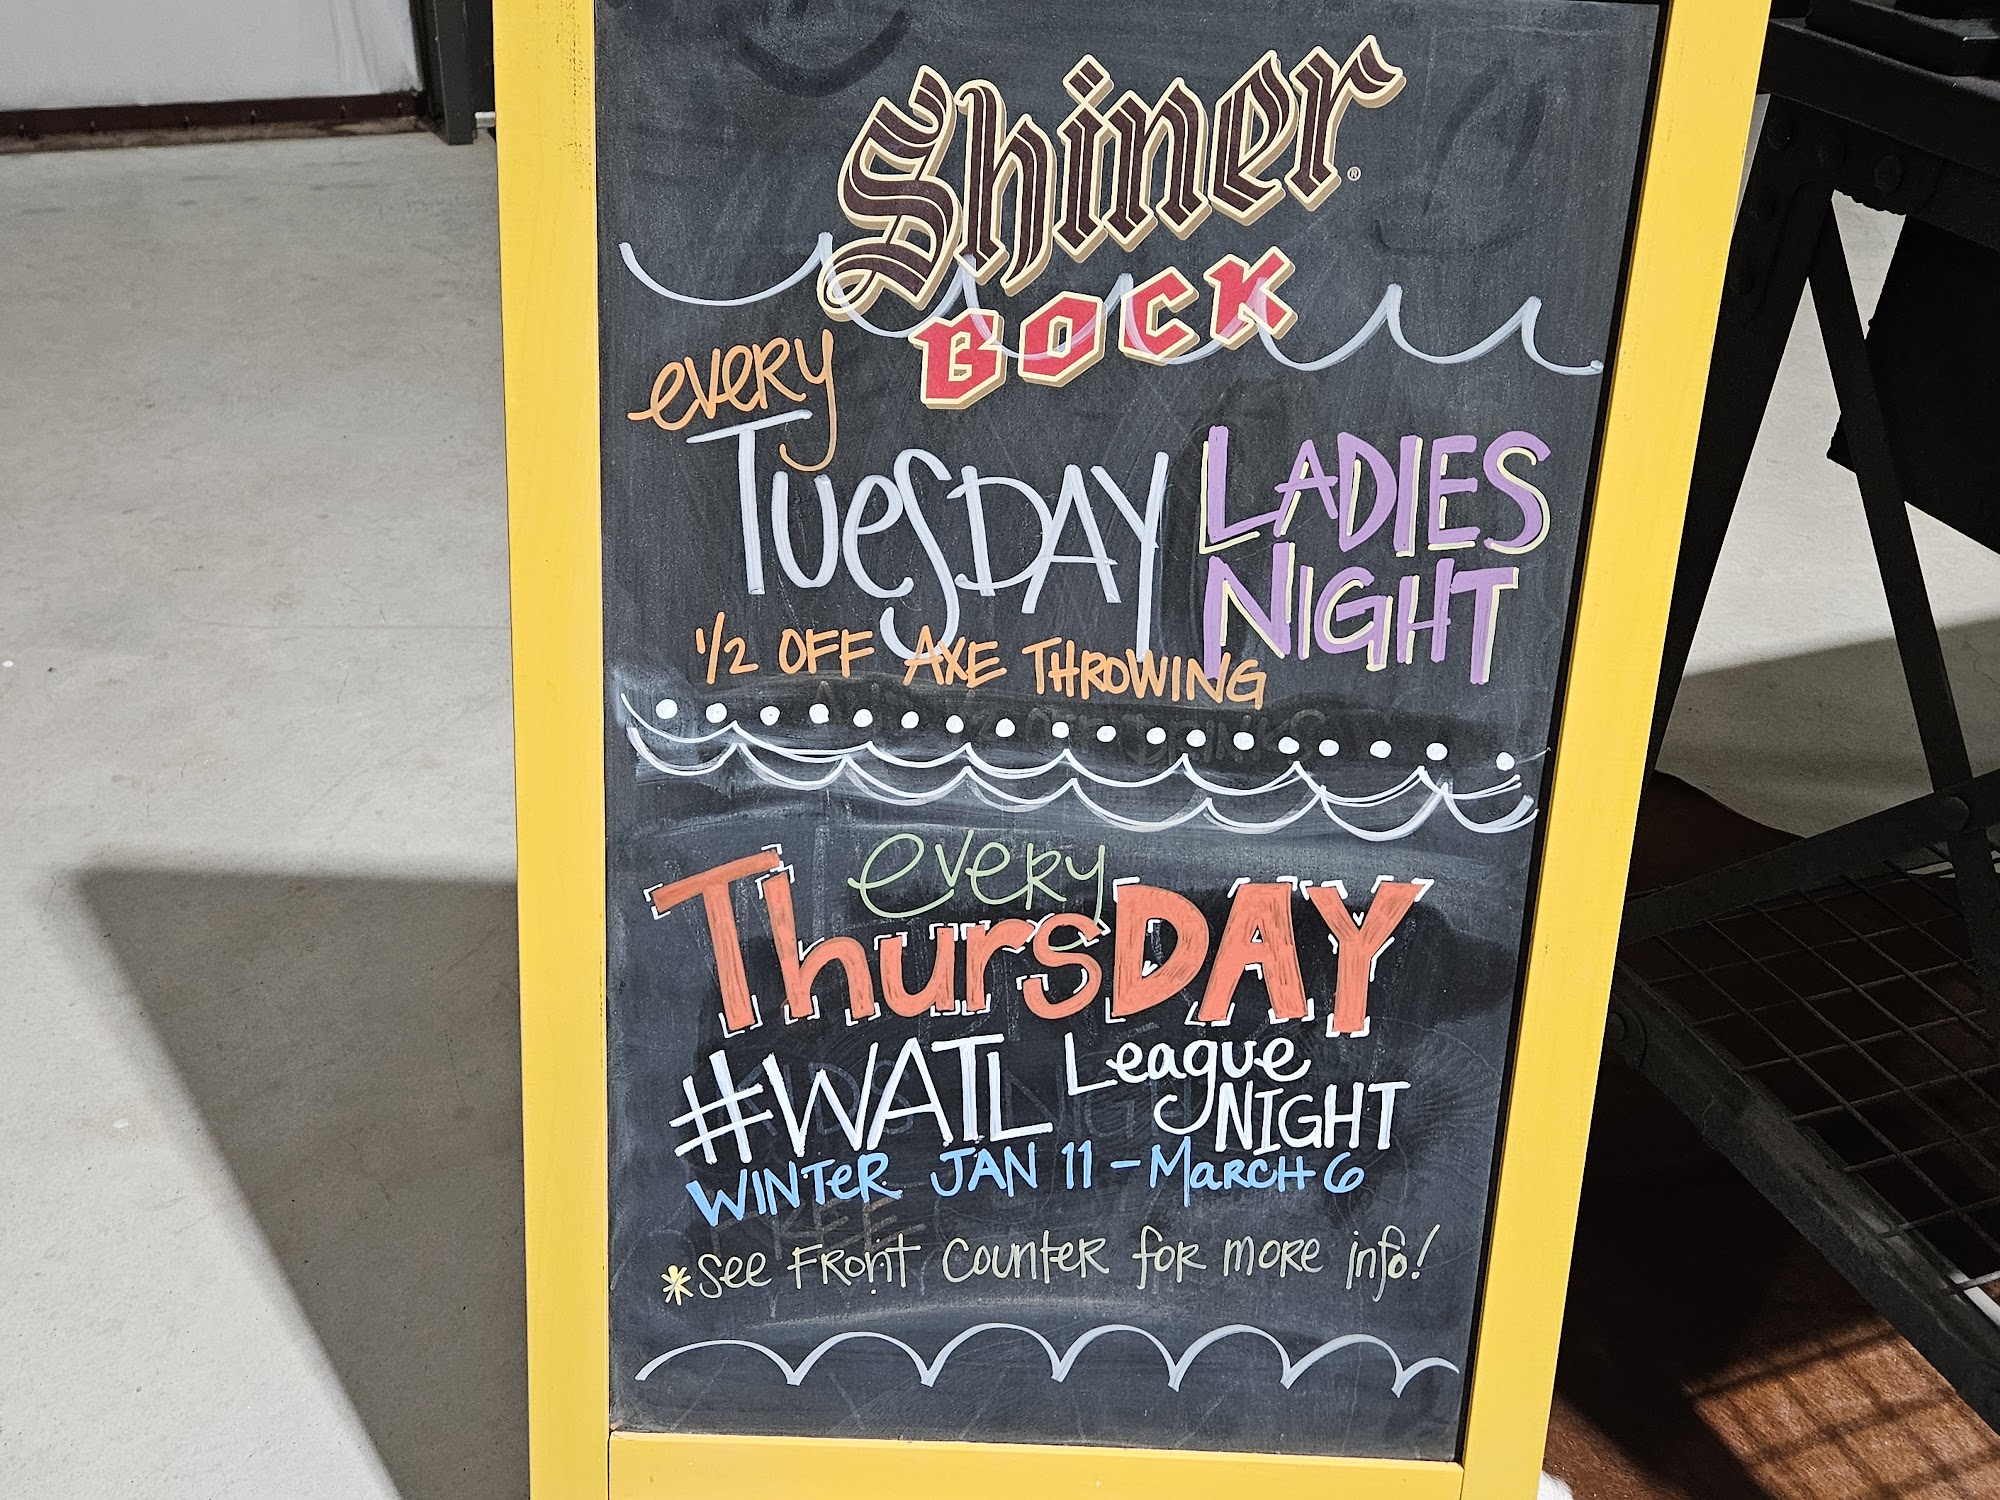 Shiner®
BOCK
every
TuesDAY LADIES
NIGHT
1/2 OFF AXE THROWING
every
ThursDAY
#WATL League
NIGHT
WINTeR JAN 11 - MARCH 6
*See FRont Counter for more info!